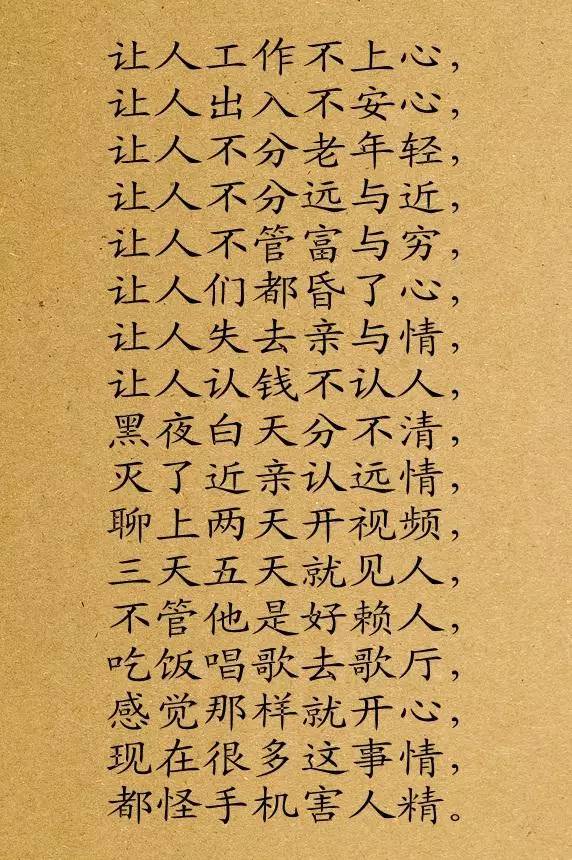 让人工作不上心，
让人出入不安心，
让人不分老年轻，
让人不分远与近，
让人不管富与穷，
让人们都昏了心，
让人失去亲与情，
让人认钱不认人，
黑夜白天分不清，
灭了近亲认远情，
聊上两天开视频，
三天五天就见人，
不管他是好赖人，
吃饭唱歌去歌厅，
感觉那样就开心，
现在很多这事情，
都怪手机害人精。